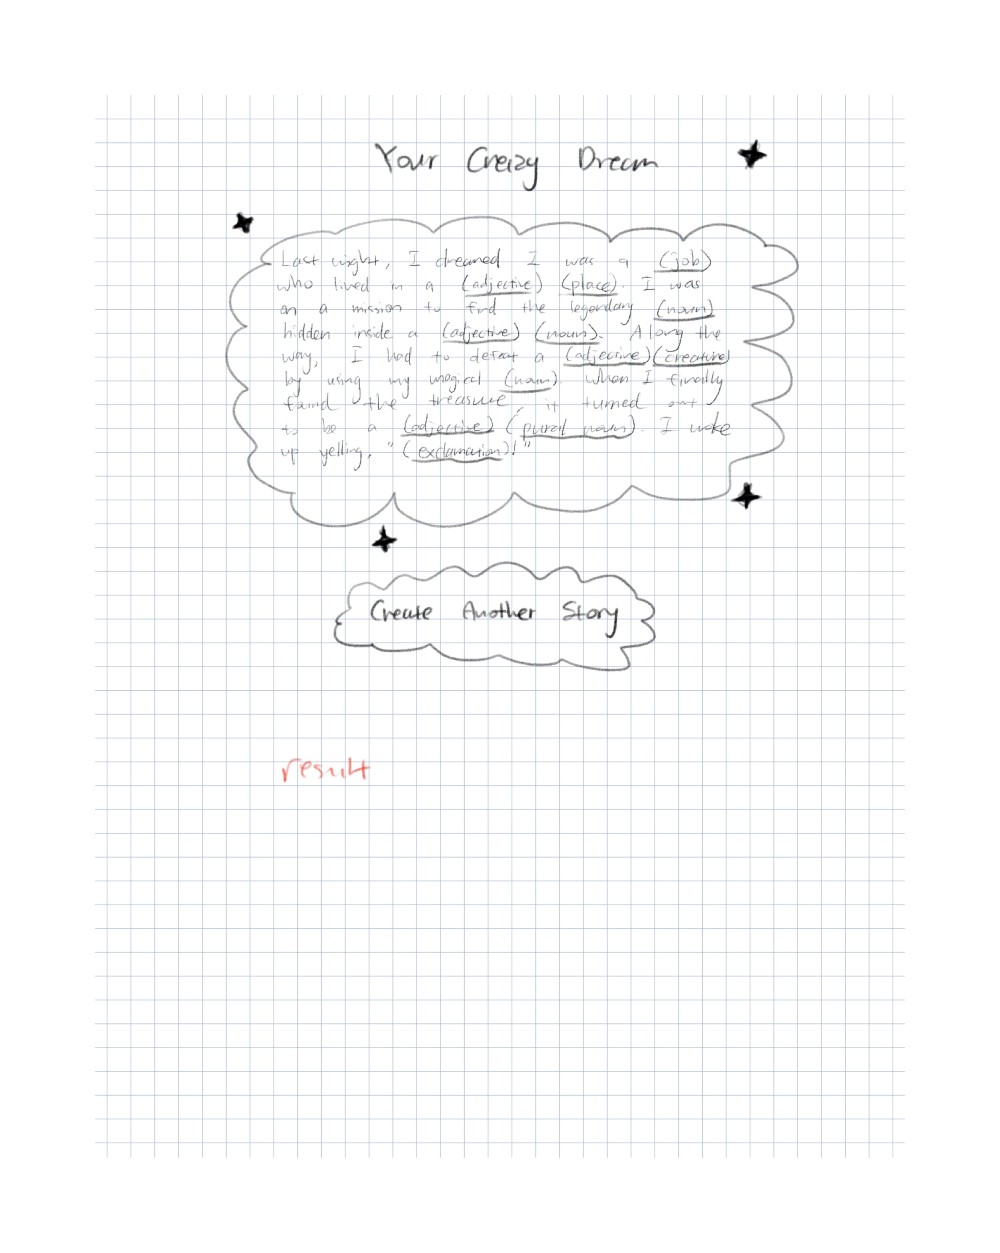 Your Creizy Dream
Last night, I dreamed I was a (job)
who lived in a (adjective) (place). I was
on a mission to find the legendary (noun)
hidden inside a (adjective) (noun). Along the
way, I had to defeat a (adjective) (creature)
by using my magical (noun). When I finally
found the treasure, it turned out
to be a (adjective) (pural noun). I woke
up yelling, "(exclamation)!"
Create Another Story
result